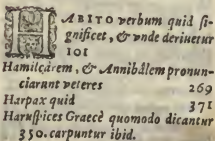 HABITO verbum quid si-
gnificet, & vnde deriuetur
101
Hamilcárem, & Annibâlem pronun-
ciarunt veteres 269
Harpax quid 371
Haruspices Graecè quomodo dicantur
350. carpuntur ibid.